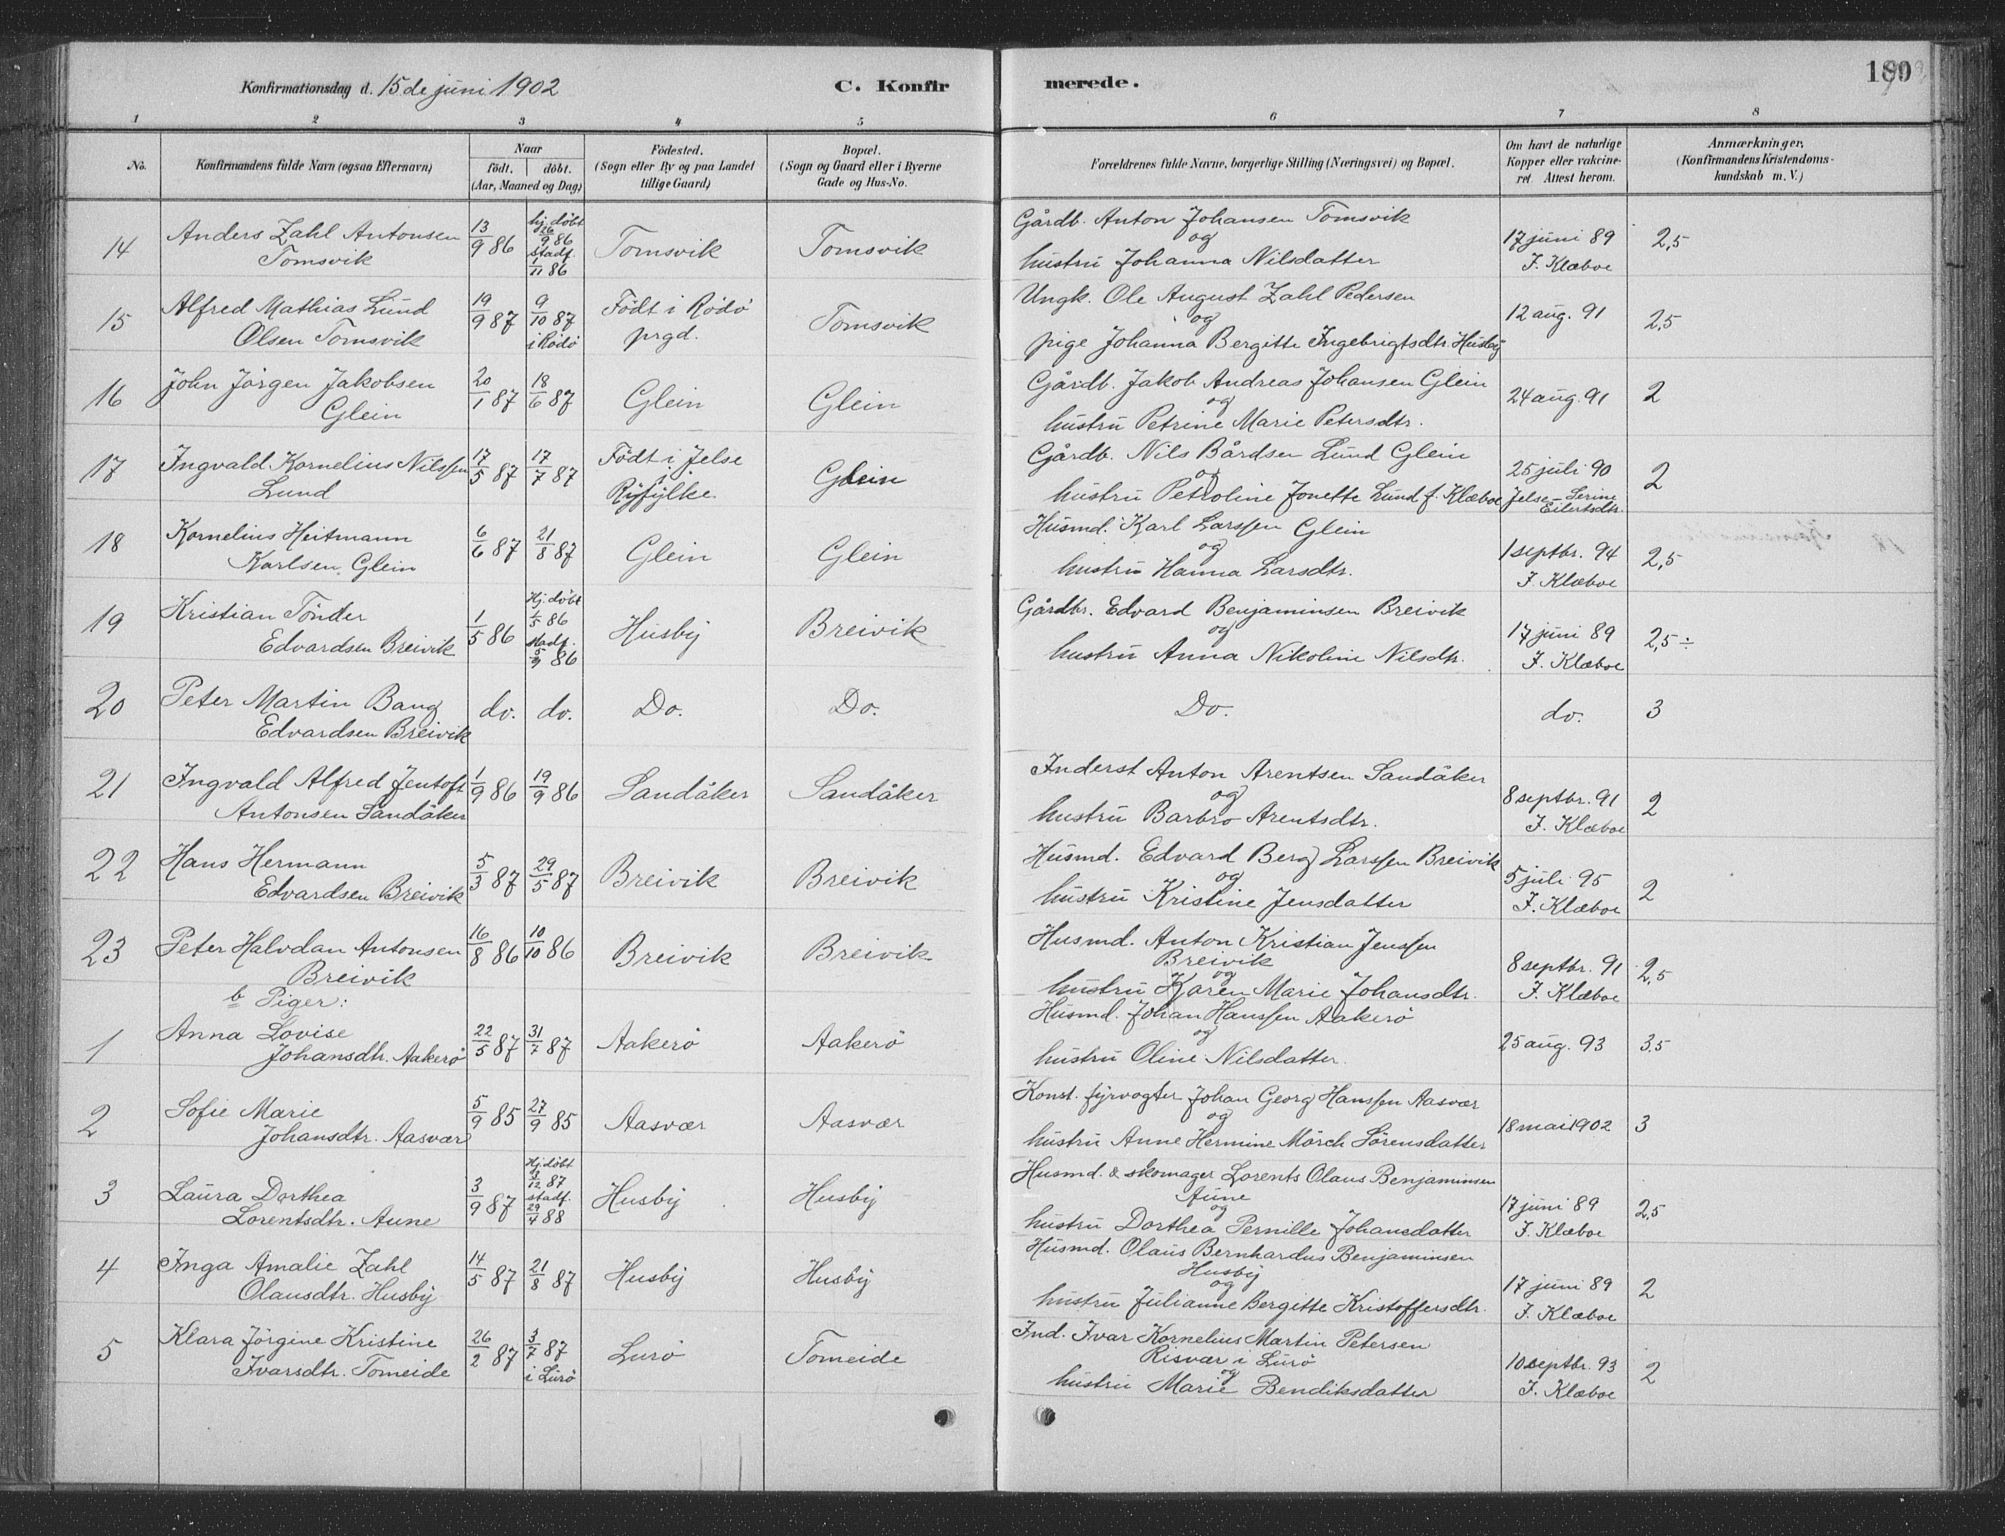 Konfirmationsdag d. 15de juni 1902
C. Konfirmerede.
180
1 2 3 4 5 6 7 8
No.
Konfirmandens fulde Navn (ogsaa Efternavn)
Naar
födt. döbt.
(Aar, Maaned og Dag)
Födested.
(Sogn eller By og paa Landet
tillige Gaard)
Bopæl.
(Sogn og Gaard eller i Byerne
Gade og Hus-No.
Forældrenes fulde Navne, borgerlige Stilling (Næringsvei) og Bopæl.
Om havt de naturlige
Kopper eller vakcine-
ret. Attest herom.
Anmærkninger.
(Konfirmandens Kristendoms-
kundskab m. V.)
14 Anders Zahl Antonsen
Tomsvik
13/9 86
hj. döbt
26/9 86
stadf.
1/11 86
Tomsvik
Tomsvik
Gårdb. Anton Johansen Tomsvik
og
hustru Johanna Nilsdatter
17 juni 89
J. Klæboe
2,5
15 Alfred Mathias Lund
Olsen Tomsvik
19/9 87
9/10 87
i Rödö
Födt i Rödö
prgd.
Tomsvik
Ungk. Ole August Zahl Pedersen
og
pige Johanna Bergitte Ingebrigtsdtr. Husby
12 aug. 91
2,5
16 John Jörgen Jakobsen
Glein
20/1 87
18/6 87
Glein
Glein
Gårdb. Jakob Andreas Johansen Glein
og
hustru Petrine Marie Petersdtr.
24 aug. 91
2
17 Ingvald Kornelius Nilssen
Lund
17/5 87
17/7 87
Födt i Jelse
i
Ryfylke
Glein
Gårdb. Nils Bårdsen Lund Glein
og
hustru Petroline Jonette Lund f. Klæboe
25 juli 90
Jelse - Serine
Eilertsdtr.
2
18 Kornelius Heitmann
Karlsen Glein
6/6 87
21/8 87
Glein
Glein
Husmd. Karl Larssen Glein
og
hustru Hanna Larsdtr.
1 septbr. 94
J. Klæboe
2,5
19 Kristian Tönder
Edvardsen Breivik
1/5 86
Hj. döbt
1/5 86
stadf.
5/9 86
Husby
Breivik
Gårdbr. Edvard Benjaminsen Breivik
og
hustru Anna Nikoline Nilsdtr.
17 juni 89
J. Klæboe
2,5 ÷
20 Peter Martin Bang
Edvardsen Breivik
do. do. Do. Do. Do. do. 3
21 Ingvald Alfred Jentoft
Antonsen Sandåker
1/9 86
19/9 86
Sandåker
Sandåker
Inderst Anton Arentsen Sandåker
og
hustru Barbro Arentsdtr.
8 septbr. 91
J. Klæboe
2
22 Hans Hermann
Edvardsen Breivik
5/3 87
29/5 87
Breivik
Breivik
Husmd. Edvard Berg Larssen Breivik
og
hustru Kristine Jensdatter
5 juli 95
J. Klæboe
2
23 Peter Halvdan Antonsen
Breivik
16/8 86
10/10 86
Breivik
Breivik
Husmd. Anton Kristian Jenssen
Breivik
og
hustru Karen Marie Johansdtr.
8 septbr. 91
J. Klæboe
2,5
b Piger:
1 Anna Lovise
Johansdtr. Aakerö
22/5 87
31/7 87
Aakerö
Aakerö
Husmd. Johan Hanssen Aakerö
og
hustru Oline Nilsdatter.
25 aug. 93
3,5
2 Sofie Marie
Johansdtr. Aasvær
5/9 85
27/9 85
Aasvær
Aasvær
Konst. fyrvogter Johan Georg Hanssen Aasvær
og
hustru Anne Hermine Mörch Sörensdatter
18 mai 1902
3
3 Laura Dorthea
Lorentsdtr. Aune
3/9 87
Hj. döbt
/12 87
stadf.
29/4 88
Husby
Husby
Husmd. & skomager Lorents Olaus Benjaminsen
Aune
og
hustru Dorthea Pernille Johansdatter
17 juni 89
J. Klæboe
2,5
4 Inga Amalie Zahl
Olausdtr. Husby
14/5 87
21/8 87
Husby
Husby
Husmd. Olaus Bernhardus Benjaminsen
Husby
og
hustru Julianne Bergitte Kristoffersdtr.
17 juni 89
J. Klæboe
2
5 Klara Jörgine Kristine
Ivarsdtr. Tomeide
26/2 87
3/7 87
i Lurö
Lurö
Tomeide
Ind. Ivar Kornelius Martin Petersen
Risvær i Lurö
og
hustru Marie Bendiksdatter
10 septbr. 93
J. Klæboe
2